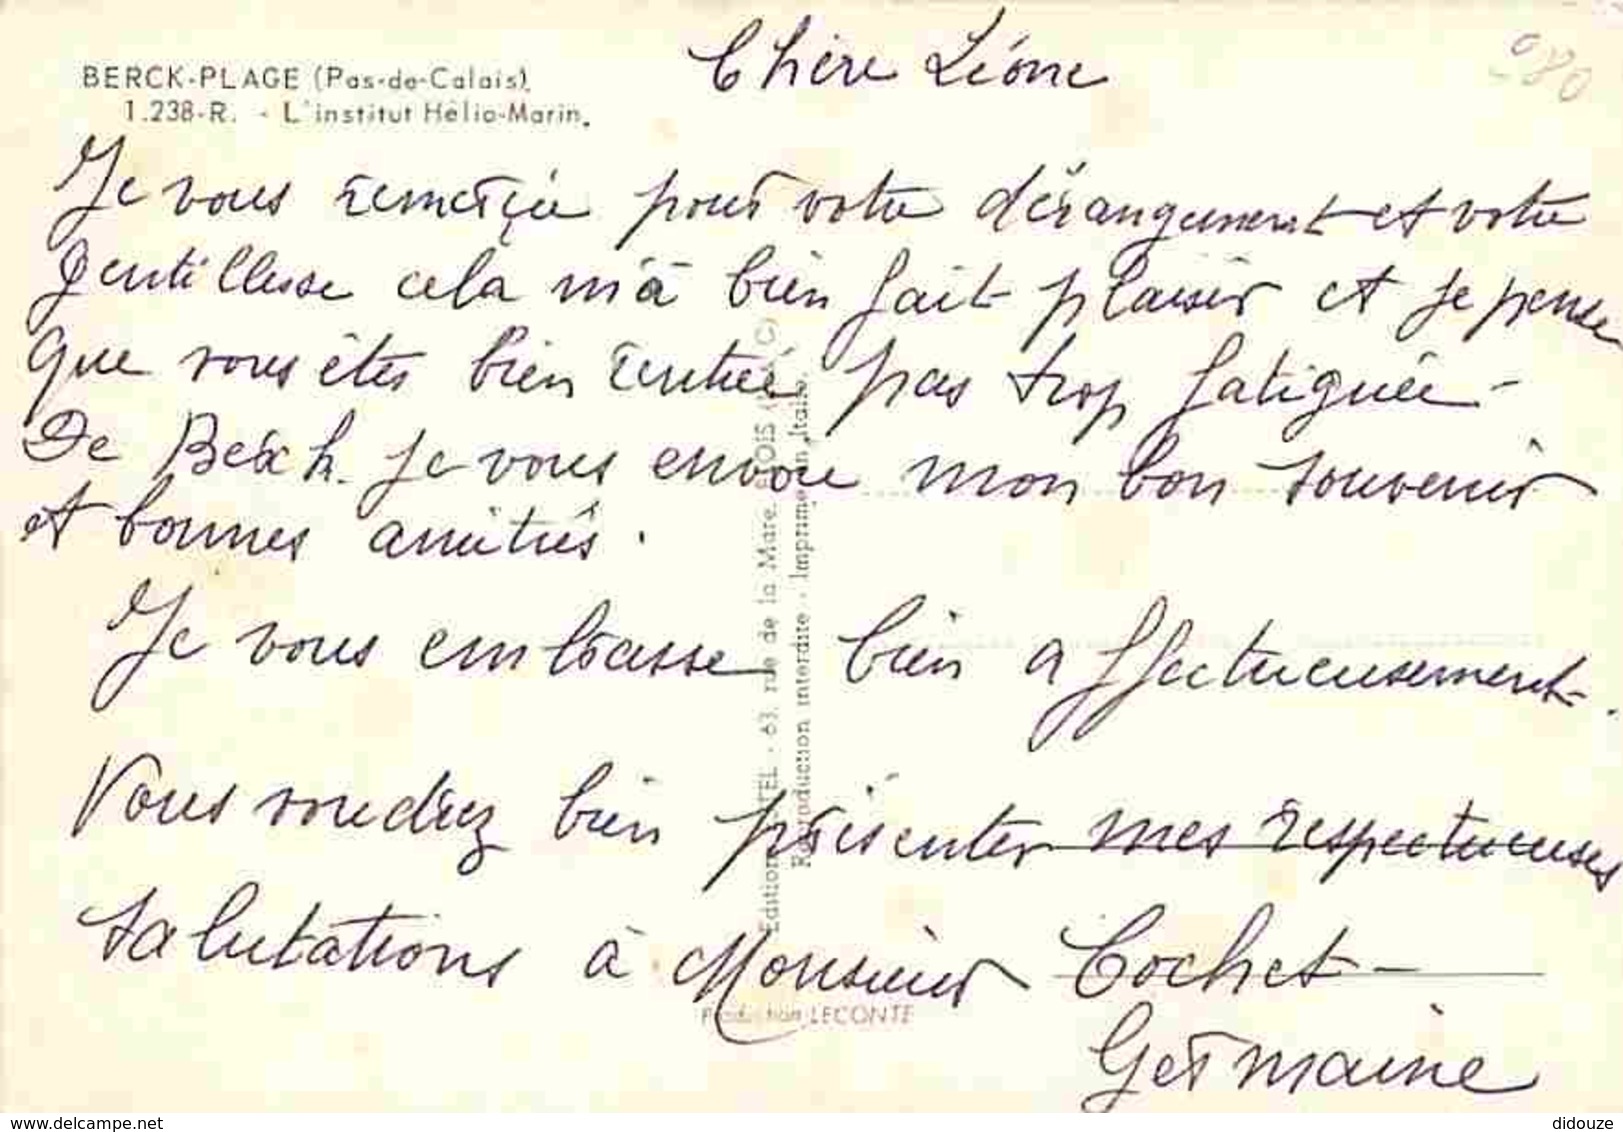 BERCK-PLAGE (Pas-de-Calais).
1.238-R. - L'institut Hélio-Marin.
Chère Léone
Je vous remerçie pour votre dérangement et votre
gentillesse cela m'à bien fait plaisir et je pense
que vous êtes bien rentrée pas trop fatiguée -
De Berck. je vous envoie mon bon souvenir
et bonnes amitiés.
Je vous embrasse bien affectueusement.
Vous voudrez bien présenter mes respectueuses
salutations à Monsieur Cochet -
Germaine
63, rue de la Mare,
Reproduction interdite - Imprimé en Italie.
Production LECONTE
080
delcampe.net
didouze